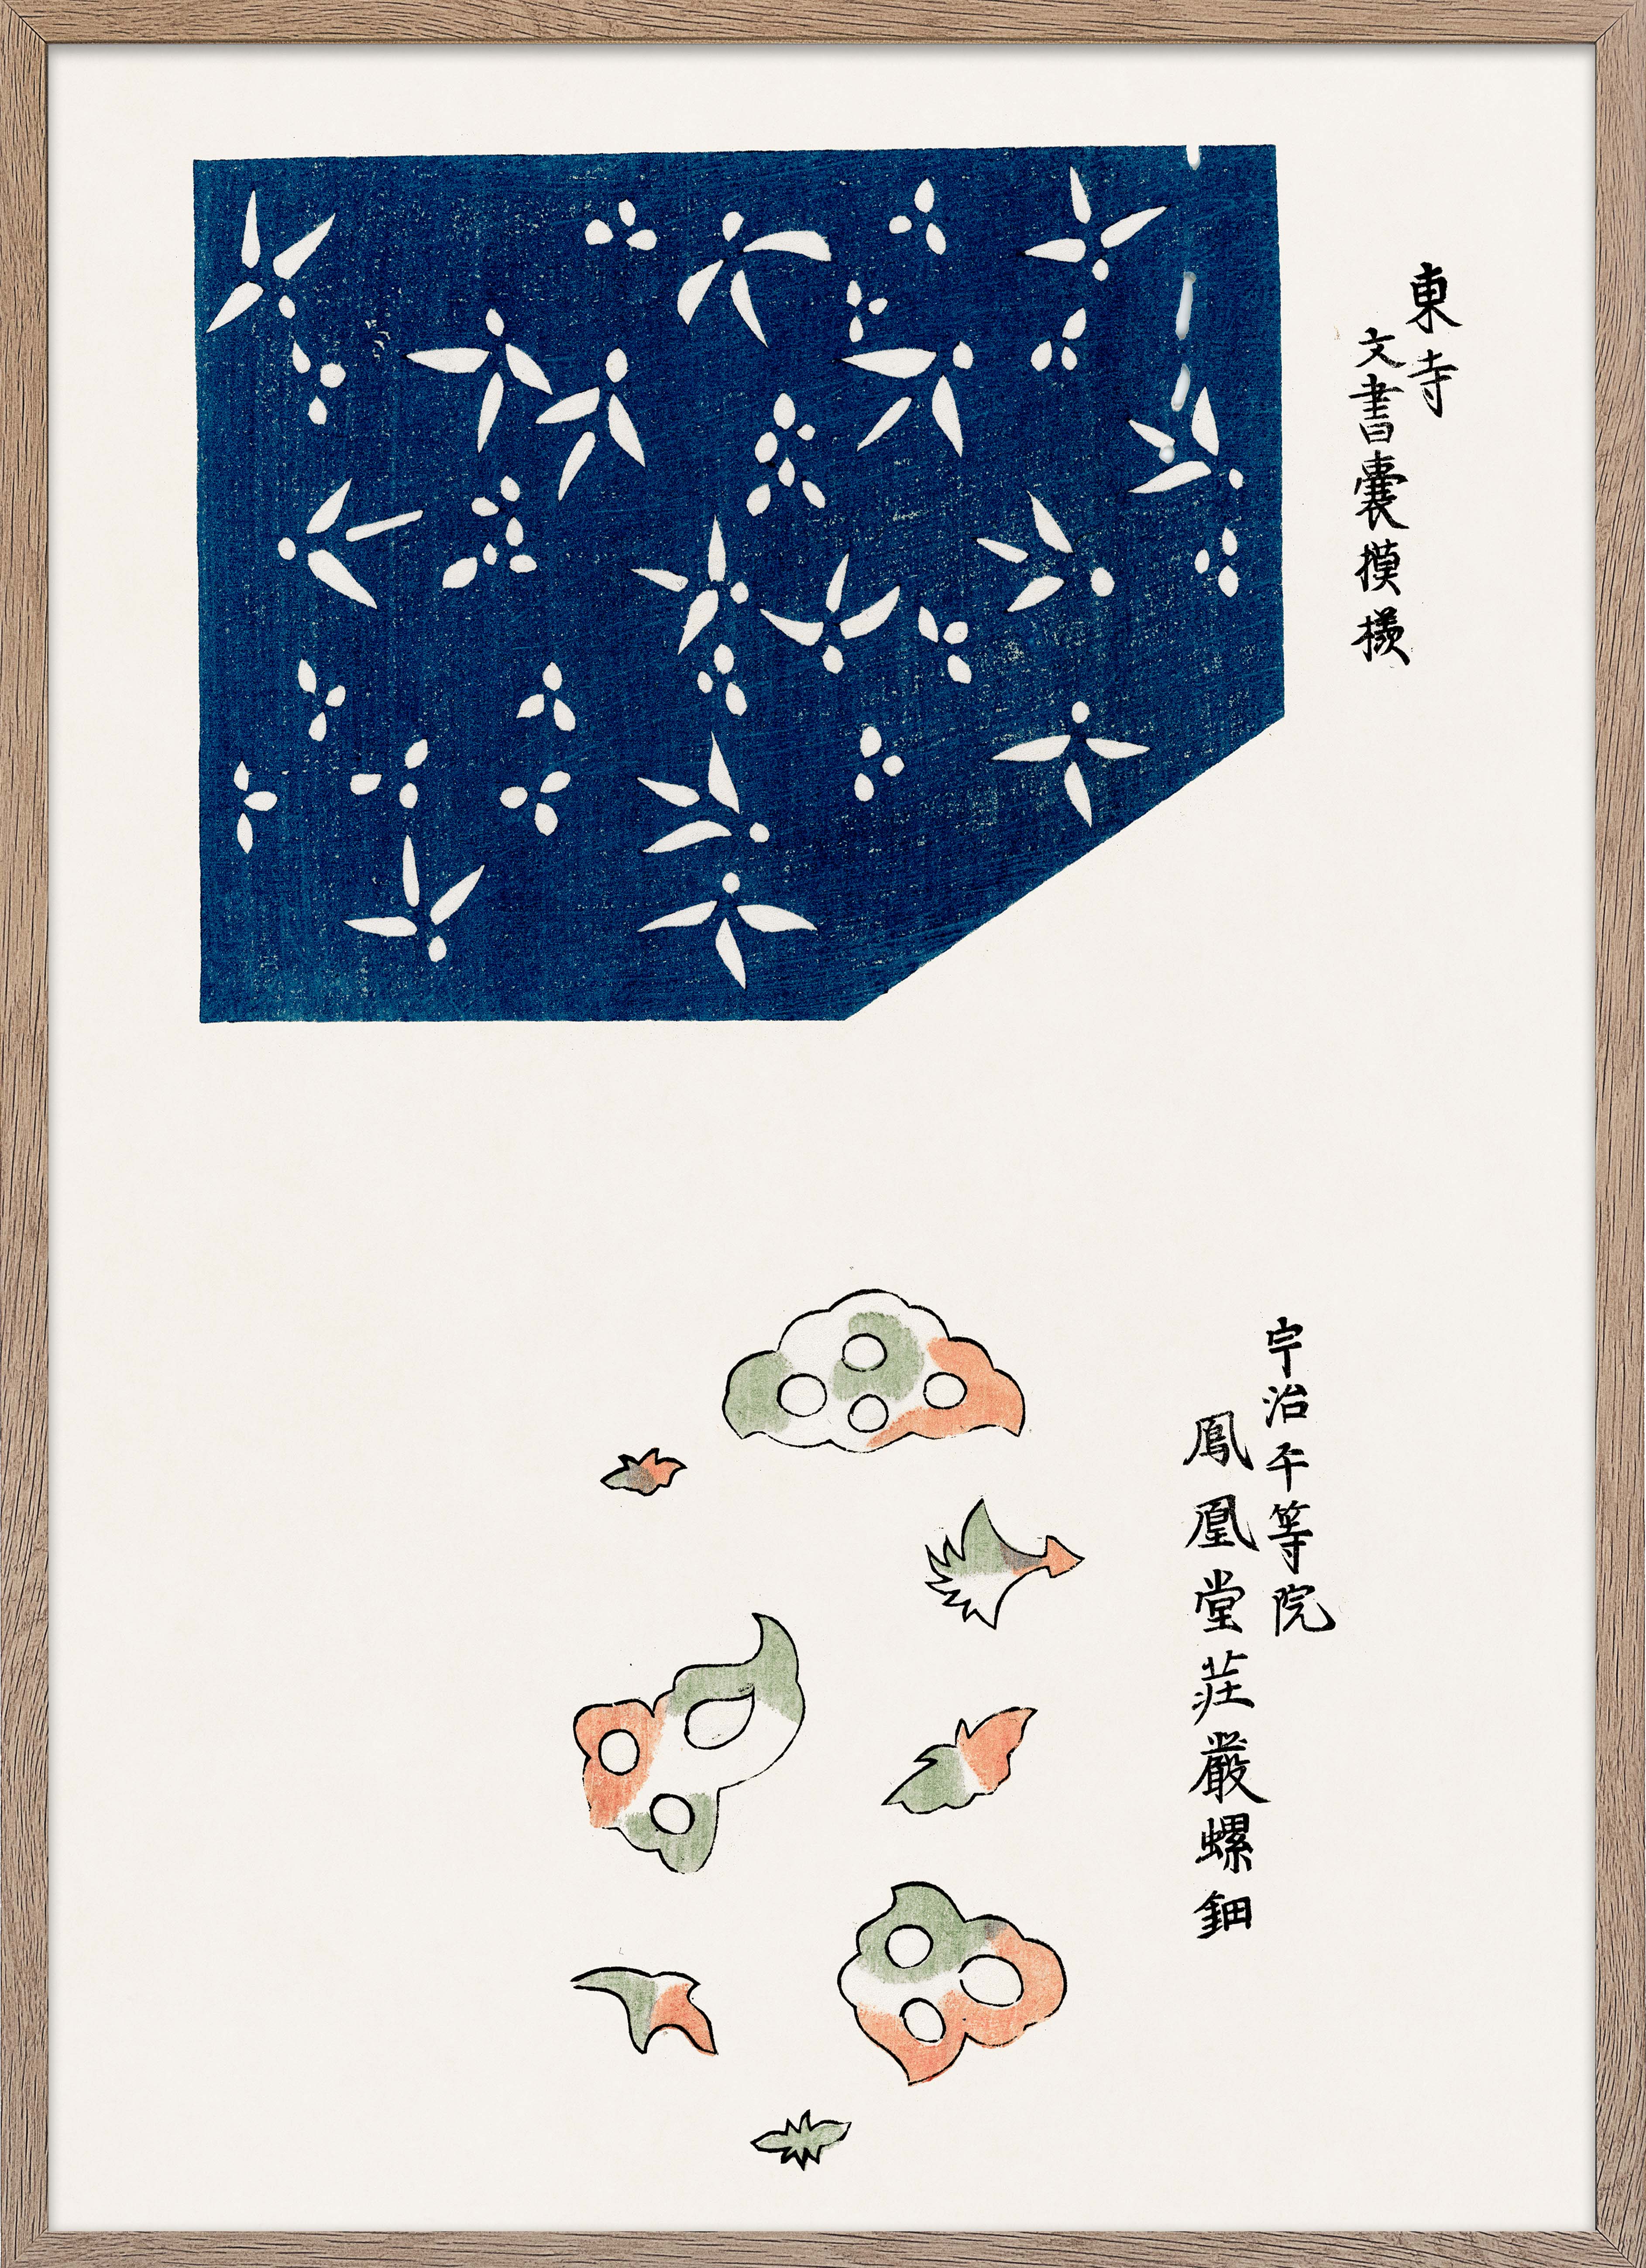 東寺
文書囊摸様
宇治平等院
鳳凰堂荘嚴螺鈿